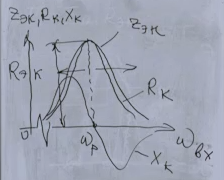 Zэк, Rк, Xк
Zэк
Rэк
Rк
0
ωр
ωвх
Xк